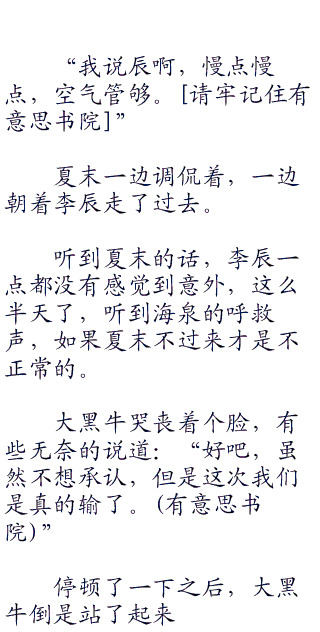 “我说辰啊，慢点慢
点，空气管够。[请牢记住有
意思书院]”
夏末一边调侃着，一边
朝着李辰走了过去。
听到夏末的话，李辰一
点都没有感觉到意外，这么
半天了，听到海泉的呼救
声，如果夏末不过来才是不
正常的。
大黑牛哭丧着个脸，有
些无奈的说道：“好吧，虽
然不想承认，但是这次我们
是真的输了。(有意思书
院)”
停顿了一下之后，大黑
牛倒是站了起来